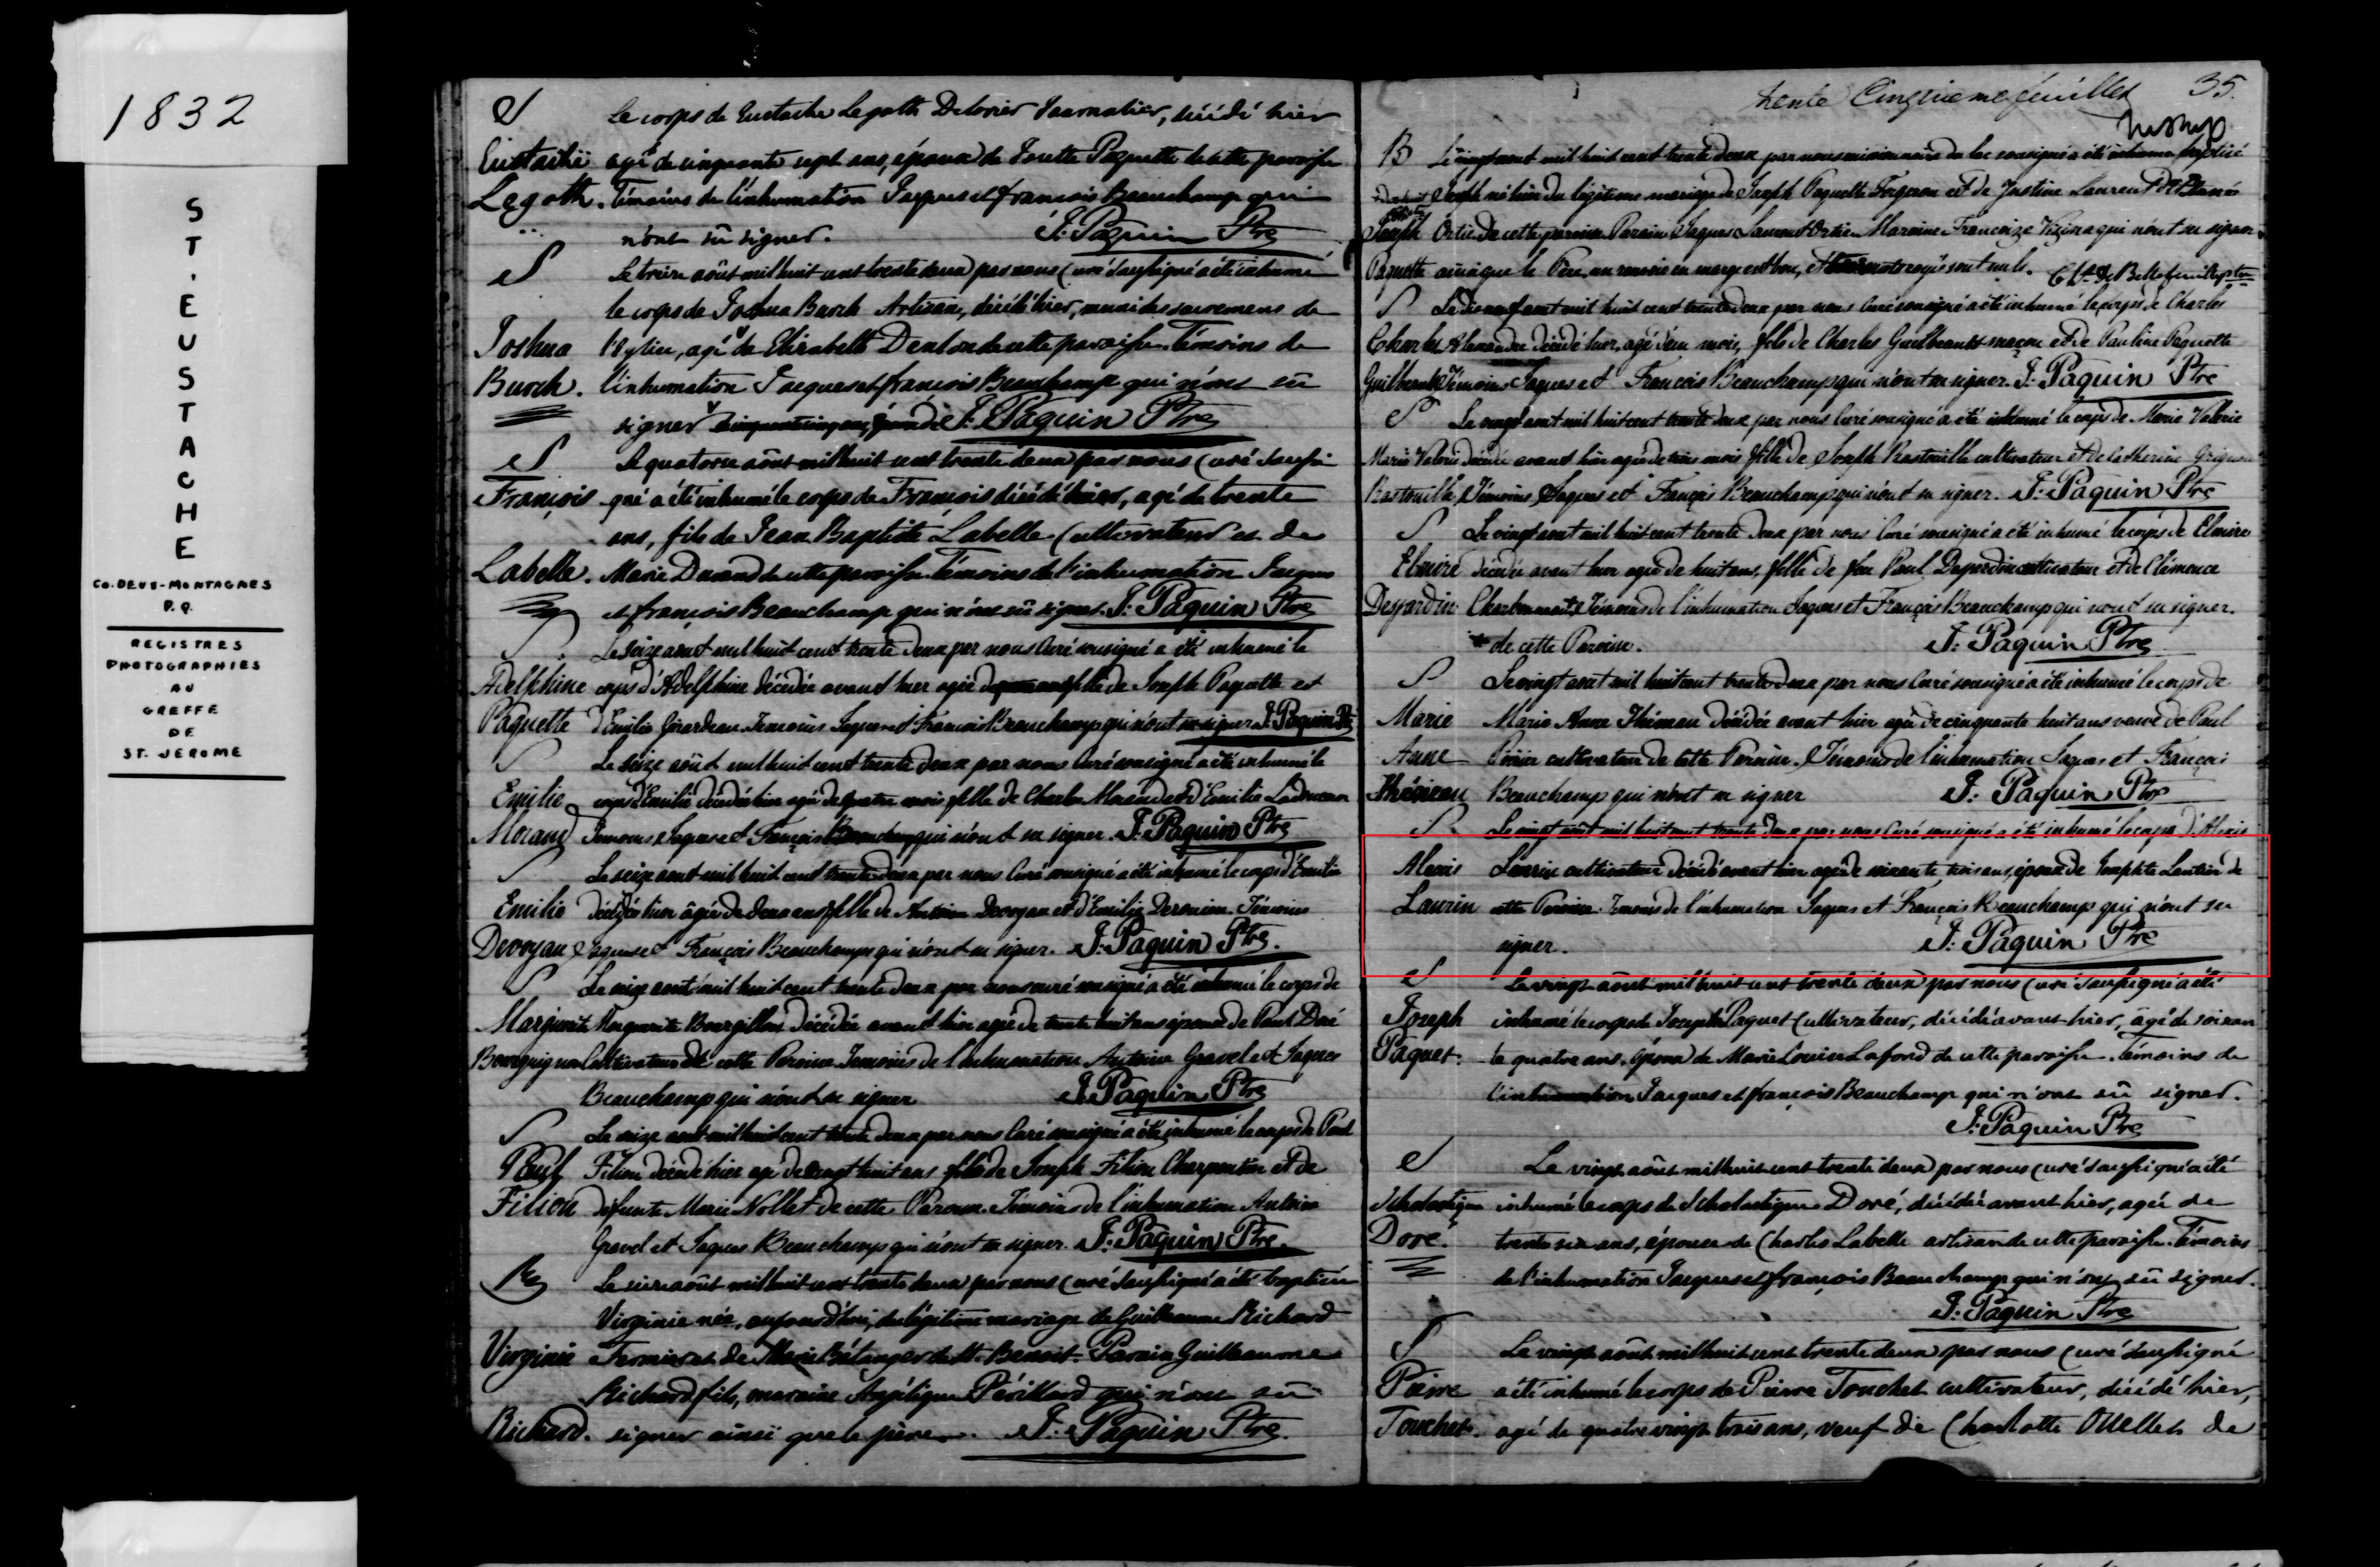 1832
ST. EUSTACHE
CO. DEUX-MONTAGNES
P.Q.
REGISTRES
PHOTOGRAPHIES
AU
GREFFE
DE
ST. JEROME
S Le corps de Eustache Legoth Delorier Journalier, décédé hier
Eustache agé de cinquante sept ans, époux de Josette Paquette de cette paroisse
Legoth. Témoins de l'inhumation Jacques et françois Beauchamp qui
n'ont sû signer. J. Paquin Ptre
S Le treize août mil huit cent trente deux par nous Curé soussigné a été inhumé
le corps de Joshua Burch Artisan, décédé hier, muni des sacremens de
Joshua l'Eglise, agé de Elizabeth Denton de cette paroisse. Témoins de
Burch. l'inhumation Jacques et françois Beauchamp qui n'ont sû
signer cinquante cinq ans, époux de J. Paquin Ptre
S Le quatorze août mil huit cent trente deux par nous Curé soussi
François gné a été inhumé le corps de François décédé hier, agé de trente
ans, fils de Jean Baptiste Labelle Cultivateur et de
Labelle. Marie Durand de cette paroisse. Témoins de l'inhumation Jacques
et françois Beauchamp qui n'ont sû signer. J. Paquin Ptre
S Le seize aout mil huit cent trente deux par nous Curé soussigné a été inhumé le
Adelphine corps d'Adelphine décédée avant hier agée de fille de Joseph Paquette et
Paquette d'Emilie Girardeau. Temoins Jaques et Francois Beauchamp qui n'ont su signer J. Paquin Ptre
S Le seize août mil huit cent trente deux par nous Curé soussigné a été inhumé le
Emilie corps d'Emilie décédée hier agée de quatre mois fille de Charles Morand et d'Emilie Ladouceur
Morand Temoins Jaques et François Beauchamp qui n'ont su signer. J. Paquin Ptre
S Le seize aout mil huit cent trente deux par nous Curé soussigné a été inhumé le corps d'Emilie
Emilie décédée hier âgée de deux ans fille de Antoine Devoyau et d'Emilie Derouin. Témoins
Devoyau Jaques et François Beauchamp qui n'ont su signer. J. Paquin Ptre.
S Le seize aout mil huit cent trente deux par nous curé soussigné a été inhumé le corps de
Marguerite Marguerite décédée avant hier agée de trente huit ans épouse de Paul Doré
Bourguignon Cultivateur de cette Paroisse. Temoins de l'inhumation Antoine Gravel et Jaques
Beauchamp qui n'ont su signer J. Paquin Ptre
S Le seize aout mil huit cent trente deux par nous Curé soussigné a été inhumé le corps de Paul
Paul Filion décédé hier agé de vingt huit ans fils de Joseph Filion Charpentier et de
Filion défunte Marie Nollet de cette Paroisse. Témoins de l'inhumation Antoine
Gravel et Jaques Beauchamp qui n'ont su signer. J. Paquin Ptre.
B Le seize août mil huit cent trente deux par nous Curé soussigné a été baptisée
Virginie née, aujourd'hui, du légitime mariage de Guillaume Richard
Virginie Fermier et de Marie Bélanger de St. Benoit. Parain Guillaume
Richard fils, maraine Angélique Périllard qui n'ont sû
Richard. signer ainsi que le père. J. Paquin Ptre.
trente Cinquieme feuillet 35.
B Le vingt aout mil huit cent trente deux par nous missionnaire du lac soussigné a été baptisé
Joseph né hier du légitime mariage de Joseph Paquette Forgeron et de Justine Laurent
Joseph Ortie de cette paroisse. Parain Jaques Laurent Ortie Maraine Françoize Vezina qui n'ont su signer
Paquette ainsi que le Père, un renvoi en marge est bon, et mots rayés sont nuls.
S Le dix neuf aout mil huit cent trente deux par nous Curé soussigné a été inhumé le corps de Charles
Charles Alexandre décédé hier, agé d'un mois, fils de Charles Guilbeault maçon et de Pauline Paquette
Guilbeault Témoins Jaques et François Beauchamp qui n'ont su signer. J. Paquin Ptre
S Le vingt aout mil huit cent trente deux par nous Curé soussigné a été inhumé le corps de Marie Valerie
Marie Valerie décédée avant hier agée de trois mois fille de Joseph Rastouille cultivateur et de Catherine Grignon
Rastouille Témoins Jaques et François Beauchamp qui n'ont su signer. J. Paquin Ptre
S Le vingt aout mil huit cent trente deux par nous Curé soussigné a été inhumé le corps de Elmire
Elmire décédée avant hier agée de huit ans, fille de feu Paul Desjardin cultivateur et de Clémence
Desjardin Charbonneau Témoins de l'inhumation Jaques et François Beauchamp qui n'ont su signer.
de cette Paroisse. J. Paquin Ptre
S Le vingt aout mil huit cent trente deux par nous Curé soussigné a été inhumé le corps de
Marie Marie Anne Thérieau décédée avant hier agée de cinquante huit ans veuve de Paul
Anne Poirier cultivateur de cette Paroisse. Témoins de l'inhumation Jaques et François
Thérieau Beauchamp qui n'ont su signer J. Paquin Ptre
S Le vingt aout mil huit cent trente deux par nous Curé soussigné a été inhumé le corps d'Alexis
Alexis Laurin cultivateur décédé avant hier agé de soixante trois ans, époux de Josephte Lantier de
Laurin cette Paroisse. Temoins de l'inhumation Jaques et François Beauchamp qui n'ont su
signer. J. Paquin Ptre
S Le vingt août mil huit cent trente deux par nous Curé soussigné a été
Joseph inhumé le corps de Joseph Paquet Cultivateur, décédé avant-hier, âgé de soixan
Paquet. te quatre ans, époux de Marie Louise Lafond de cette paroisse. Témoins de
l'inhumation Jacques et françois Beauchamp qui n'ont sû signer.
J. Paquin Ptre
S Le vingt août mil huit cent trente deux par nous Curé soussigné a été
Scholastique inhumé le corps de Scholastique Doré, décédée avant hier, agée de
Doré. trente six ans, épouse de Charles Labelle artisan de cette paroisse. Témoins
de l'inhumation Jacques et françois Beauchamp qui n'ont sû signer.
J. Paquin Ptre
S Le vingt août mil huit cent trente deux par nous Curé soussigné
Pierre a été inhumé le corps de Pierre Touchet cultivateur, décédé hier,
Touchet. agé de quatre vingt trois ans, veuf de Charlotte Ouellet de